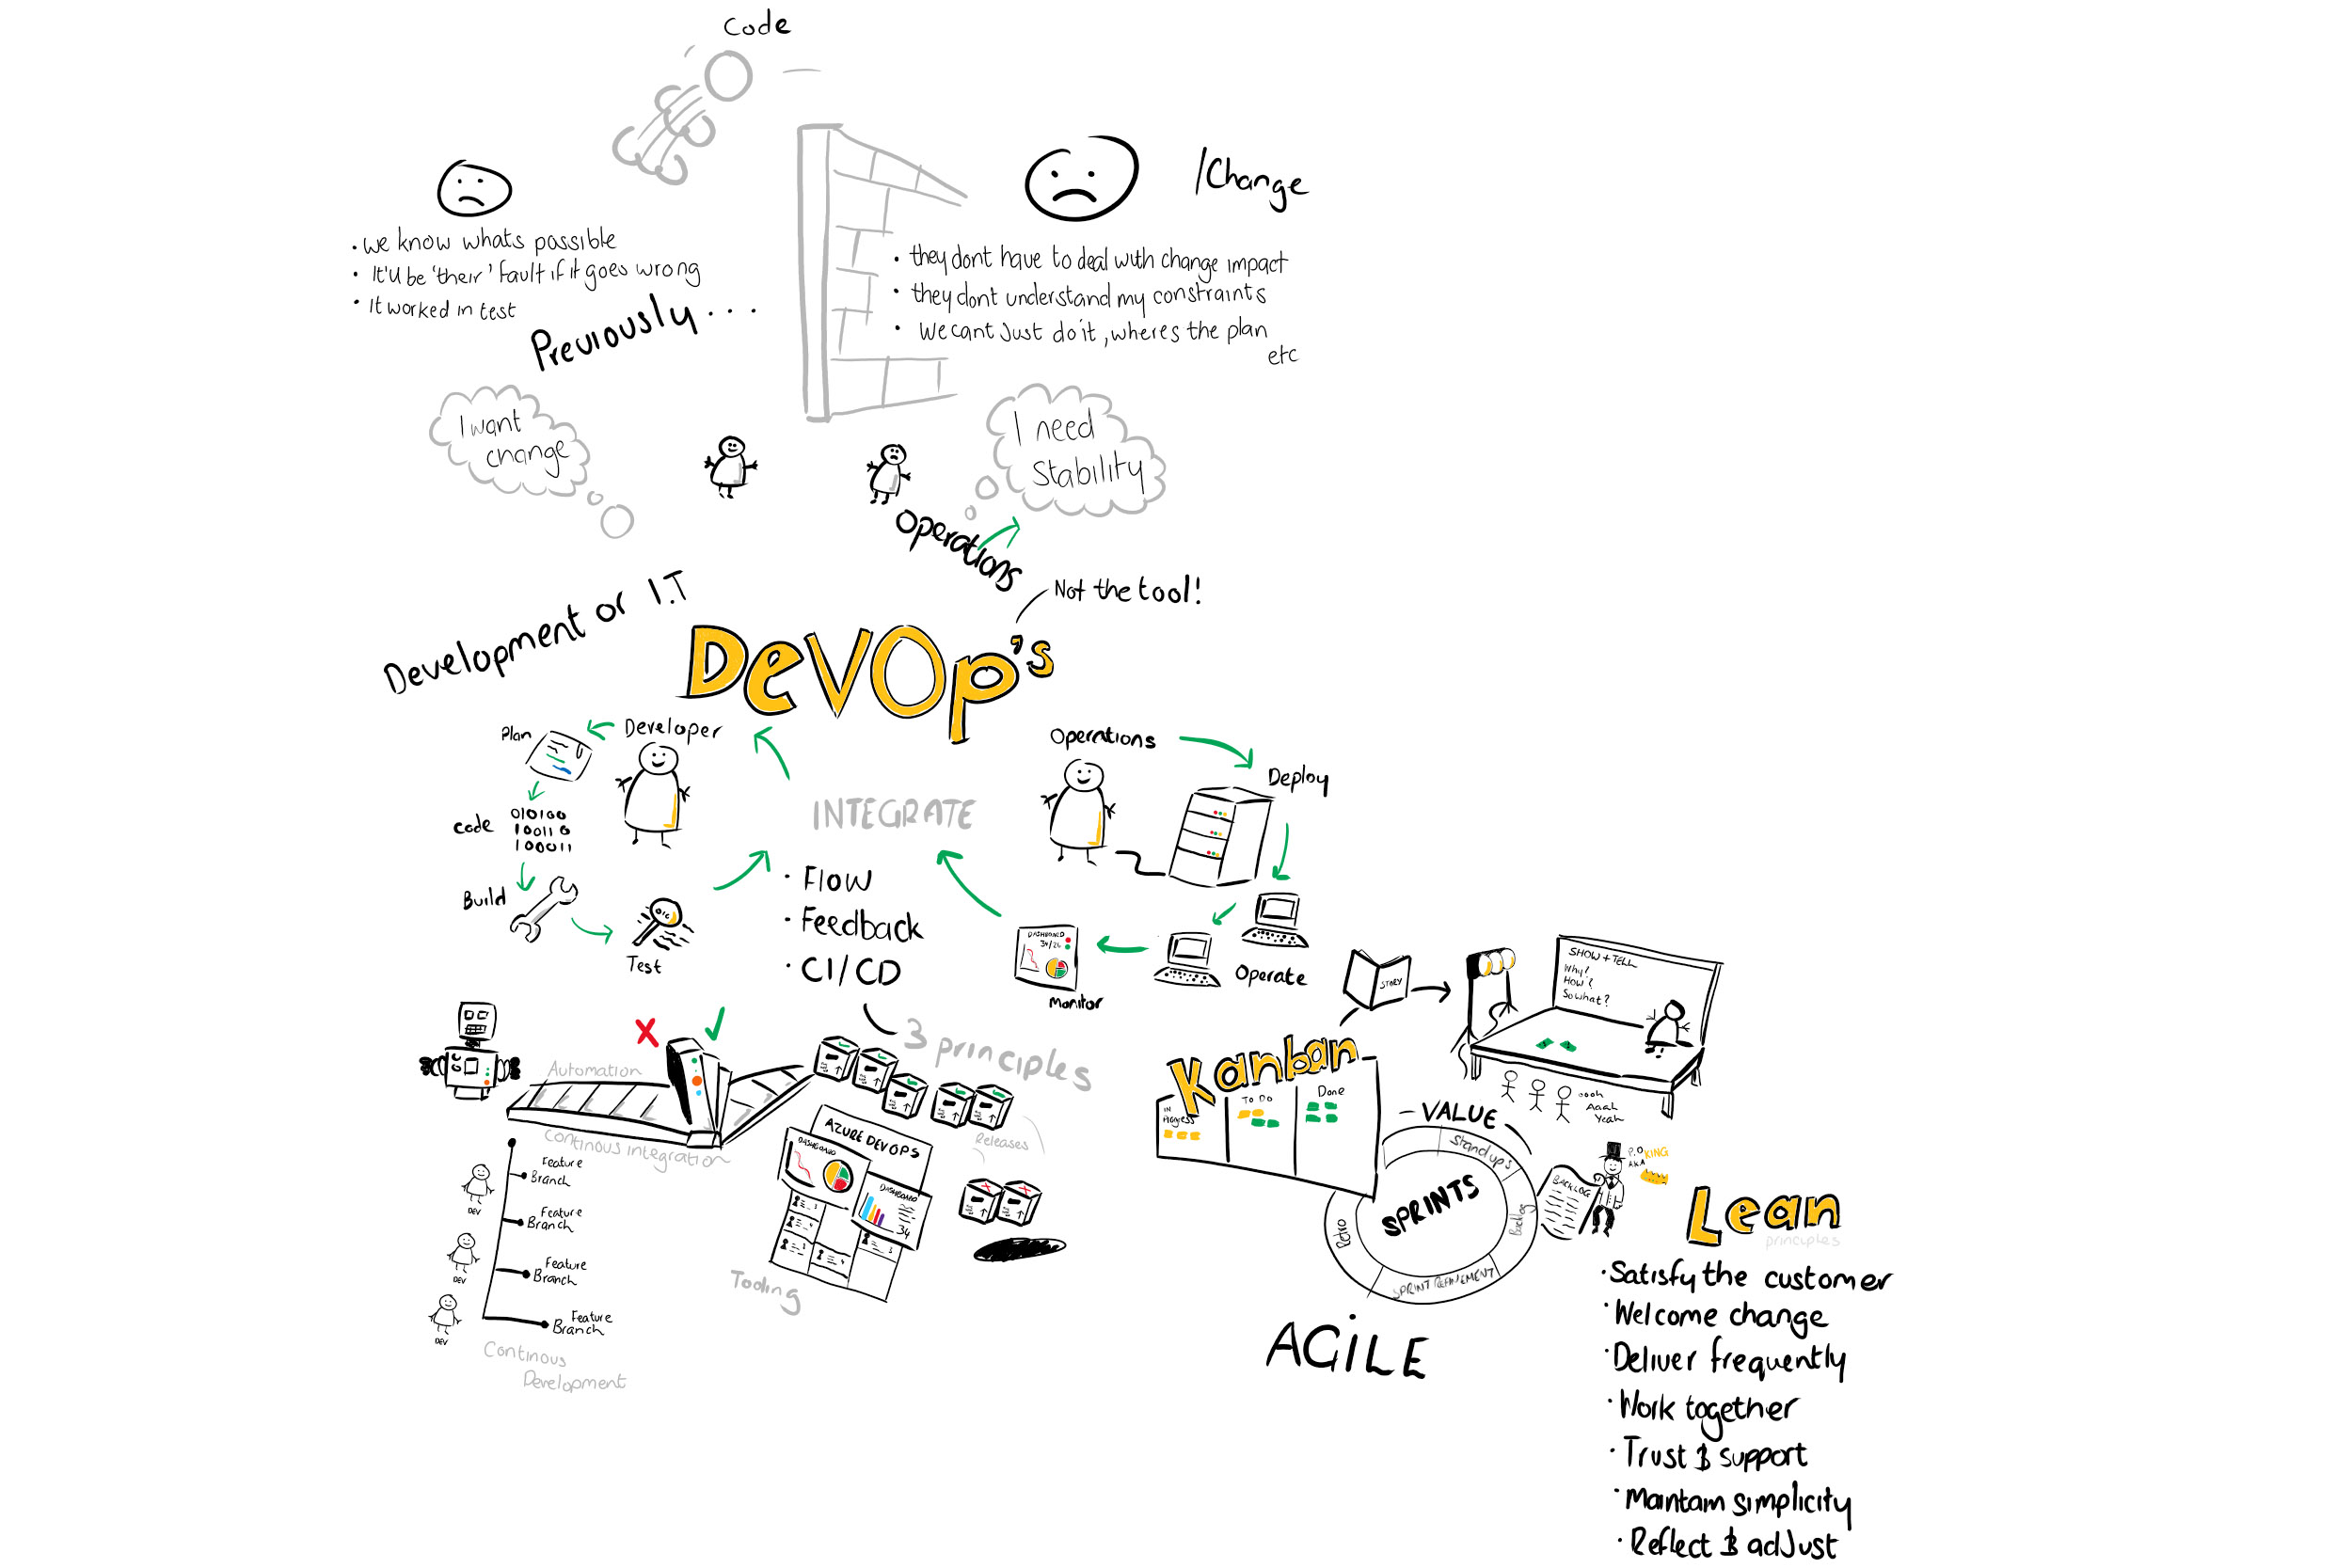 Code
/Change
• We know whats possible
• It'll be 'their' fault if it goes wrong
• It worked in test
Previously...
• they dont have to deal with change impact
• they dont understand my constraints
• We cant just do it, wheres the plan
etc
I want
change
I need
stability
Operations
Development or I.T
Not the tool!
DevOp's
Developer
Plan
code
010100
100110
100011
Build
Test
INTEGRATE
• Flow
• Feedback
• CI/CD
3 principles
Operations
Deploy
Operate
DASHBOARD
Monitor
Automation
Continous integration
Releases
Feature
Branch
Feature
Branch
Feature
Branch
Feature
Branch
DEV
DEV
DEV
Continous
Development
AZURE DEVOPS
DASHBOARD
DASHBOARD
34
Tooling
STORY
SHOW + TELL
Why?
How?
So what?
oooh
Aaah
Yeah
Kanban
IN
Progress
TO DO
Done
VALUE
Stand ups
Backlog
SPRINT REFINEMENT
Retro
SPRINTS
BACKLOG
P.O
AKA
KING
AGiLE
Lean
principles
• Satisfy the customer
• Welcome change
• Deliver frequently
• Work together
• Trust & support
• Maintain simplicity
• Reflect & adjust